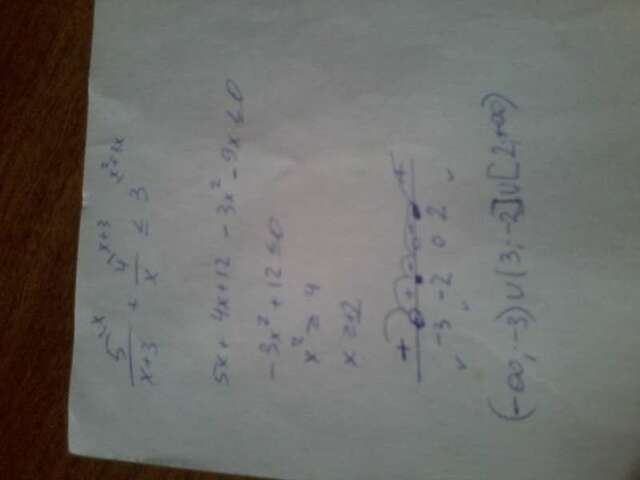 5^{\x}/(x+3) + 4^{\x+3}/x ≤ 3^{\x²+3x}
5x + 4x + 12 - 3x² - 9x ≤ 0
-3x² + 12 ≤ 0
x² ≥ 4
x ≥ ±2
+ + - - +
-3 -2 0 2
✓ ✓ ✓
(-∞; -3) ∪ (3; -2] ∪ [2; +∞)